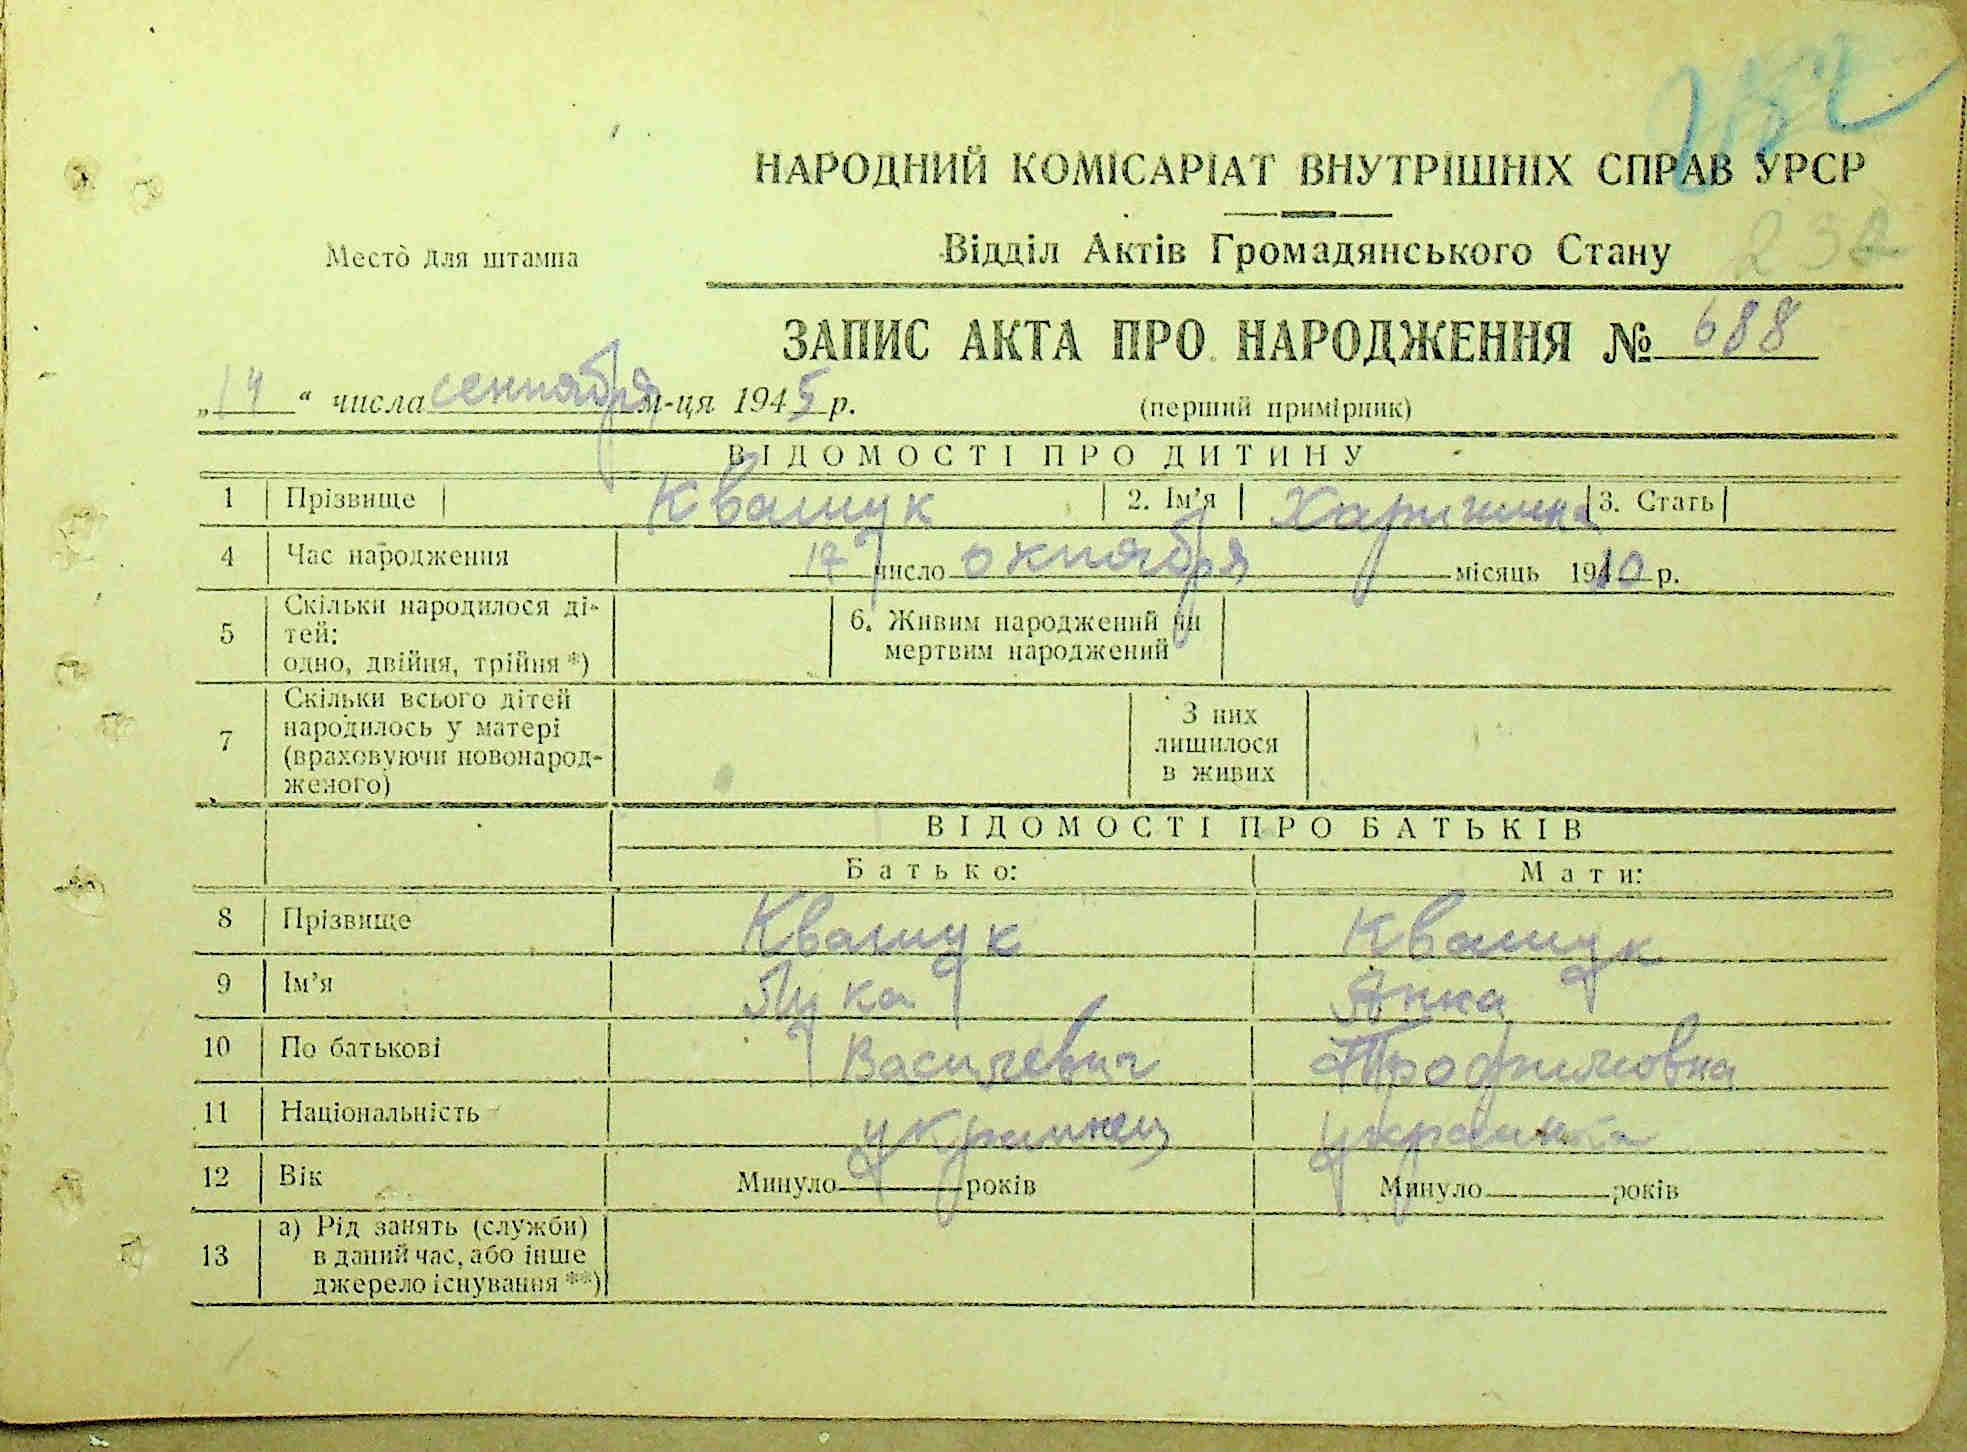 НАРОДНИЙ КОМІСАРІАТ ВНУТРІШНІХ СПРАВ УРСР
232
Место для штампа
Відділ Актів Громадянського Стану
ЗАПИС АКТА ПРО НАРОДЖЕННЯ № 688
„14“ числа сентября м-ця 1945 р. (перший примірник)
ВІДОМОСТІ ПРО ДИТИНУ
1 Прізвище Квашук 2. Ім’я 3. Стать
4 Час народження 17 число октября місяць 1910 р.
5 Скільки народилося ді-
тей:
одно, двійня, трійня *)
6. Живим народжений чи
мертвим народжений
7 Скільки всього дітей
народилось у матері
(враховуючи новонарод-
женого)
З них
лишилося
в живих
ВІДОМОСТІ ПРО БАТЬКІВ
Батько: Мати:
8 Прізвище Квашук Квашук
9 Ім’я Лука Анна
10 По батькові Василевич Трофимовна
11 Національність украинец украинка
12 Вік Минуло років Минуло років
13 а) Рід занять (служби)
в даний час, або інше
джерело існування **)